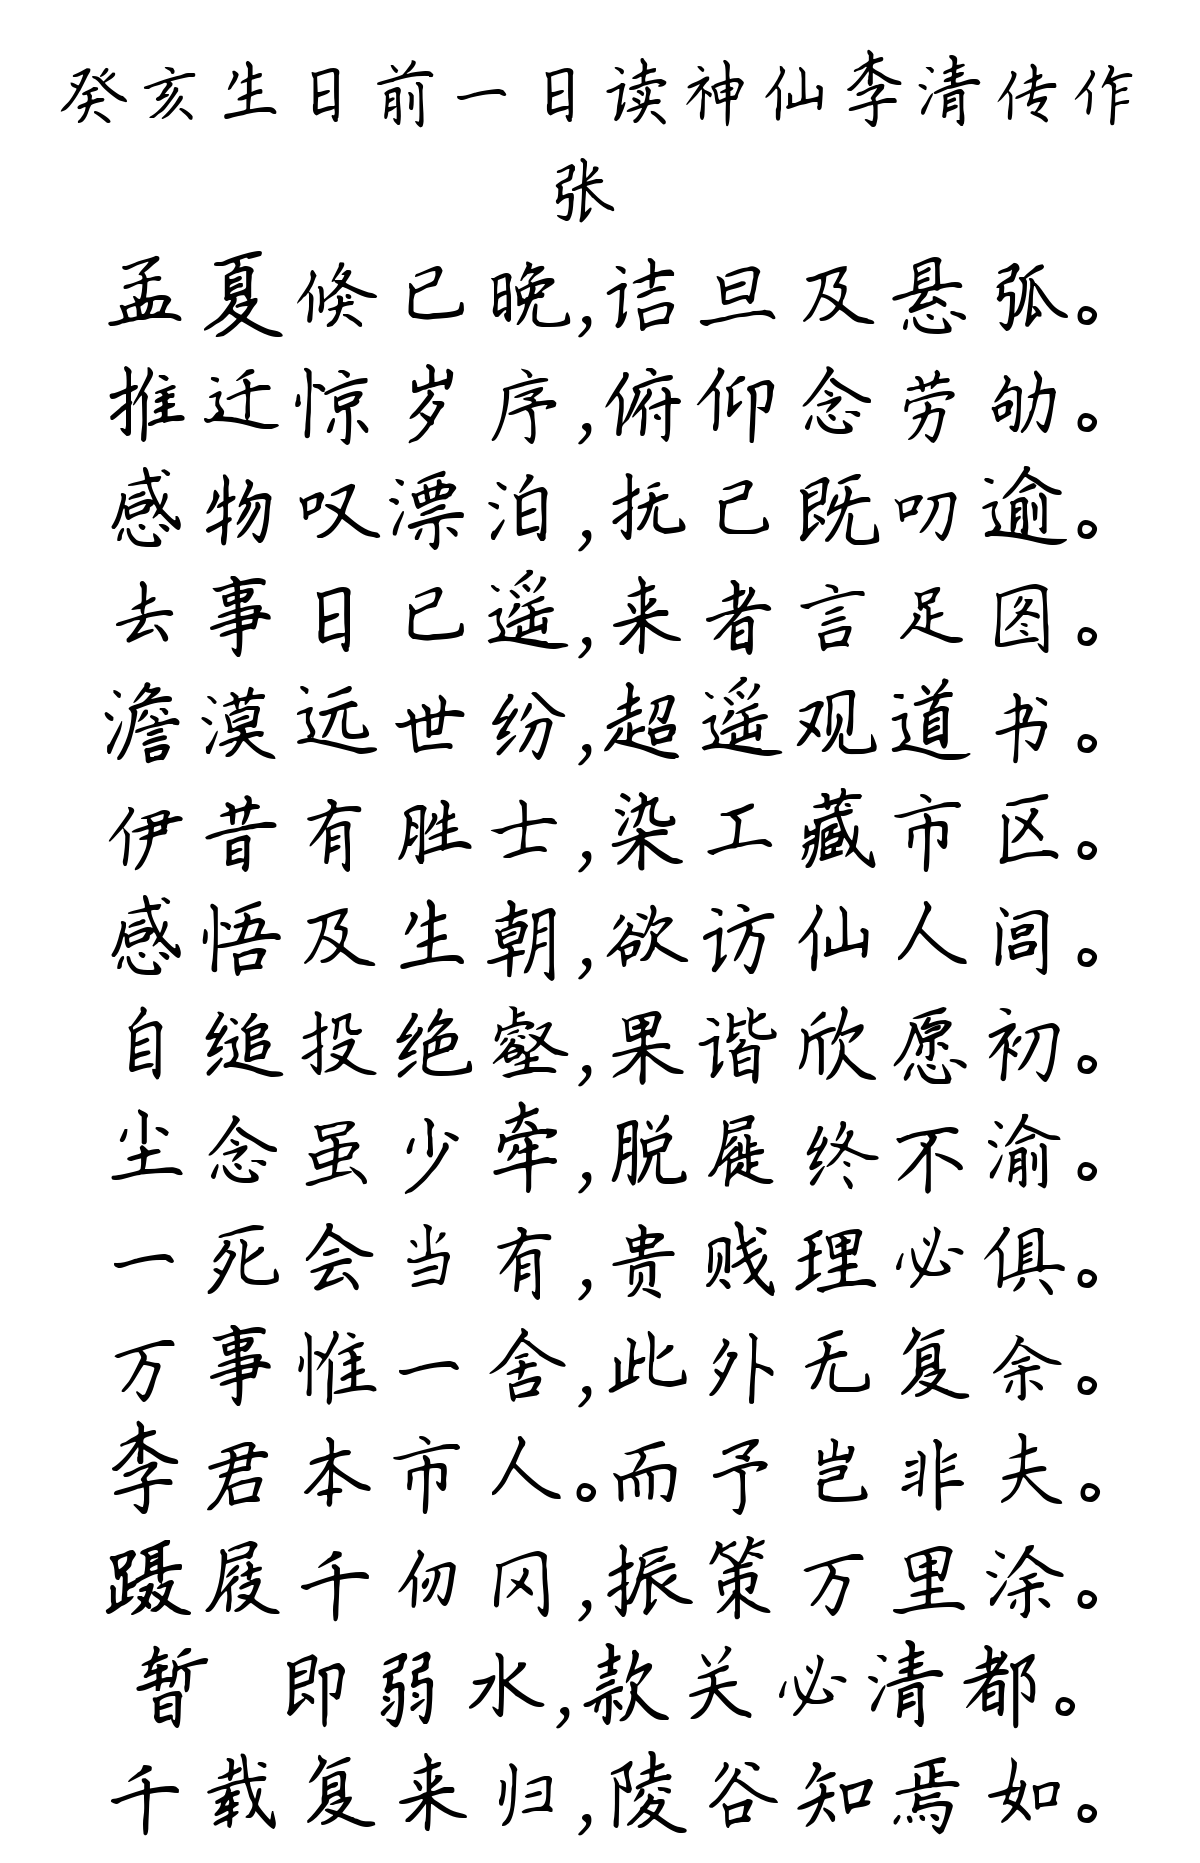 癸亥生日前一日读神仙李清传作
张
孟夏倏已晚,诘旦及悬弧。
推迁惊岁序,俯仰念劳劬。
感物叹漂泊,抚己既叨逾。
去事日已遥,来者言足图。
澹漠远世纷,超遥观道书。
伊昔有胜士,染工藏市区。
感悟及生朝,欲访仙人闾。
自缒投绝壑,果谐欣愿初。
尘念虽少牵,脱屣终不渝。
一死会当有,贵贱理必俱。
万事惟一舍,此外无复余。
李君本市人。而予岂非夫。
蹑屐千仞冈,振策万里涂。
暂 即弱水,款关必清都。
千载复来归,陵谷知焉如。